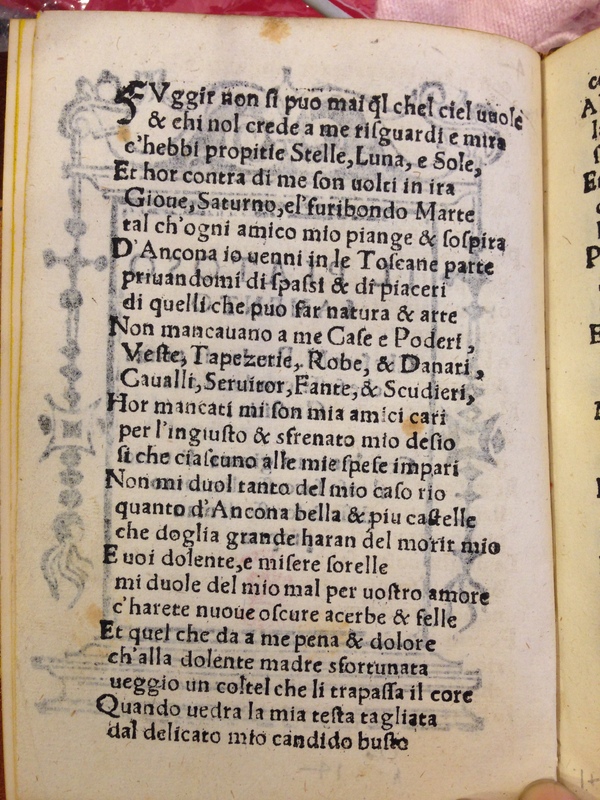 FVggir non si puo mai ql chel ciel uuole
& chi nol crede a me risguardi e mira
c'hebbi propitie Stelle, Luna, e Sole,
Et hor contra di me son uolti in ira
Gioue, Saturno, el'furibondo Marte
tal ch'ogni amico mio piange & sospira
D'Ancona io uenni in le Toscane parte
priuandomi di spassi & di piaceri
di quelli che puo far natura & arte
Non mancauano a me Case e Poderi,
Veste, Tapezerie, Robe, & Danari,
Caualli, Seruitor, Fante, & Scudieri,
Hor mancati mi son mia amici cari
per l'ingiusto & sfrenato mio desio
si che ciascuno alle mie spese impari
Non mi duol tanto del mio caso rio
quanto d'Ancona bella & piu castelle
che doglia grande haran del morir mio
E uoi dolente, e misere sorelle
mi duole del mio mal per uostro amore
c'harete nuoue oscure acerbe & felle
Et quel che da a me pena & dolore
ch'alla dolente madre sfortunata
ueggio un coltel che li trapassa il core
Quando uedra la mia testa tagliata
dal delicato mio candido busto